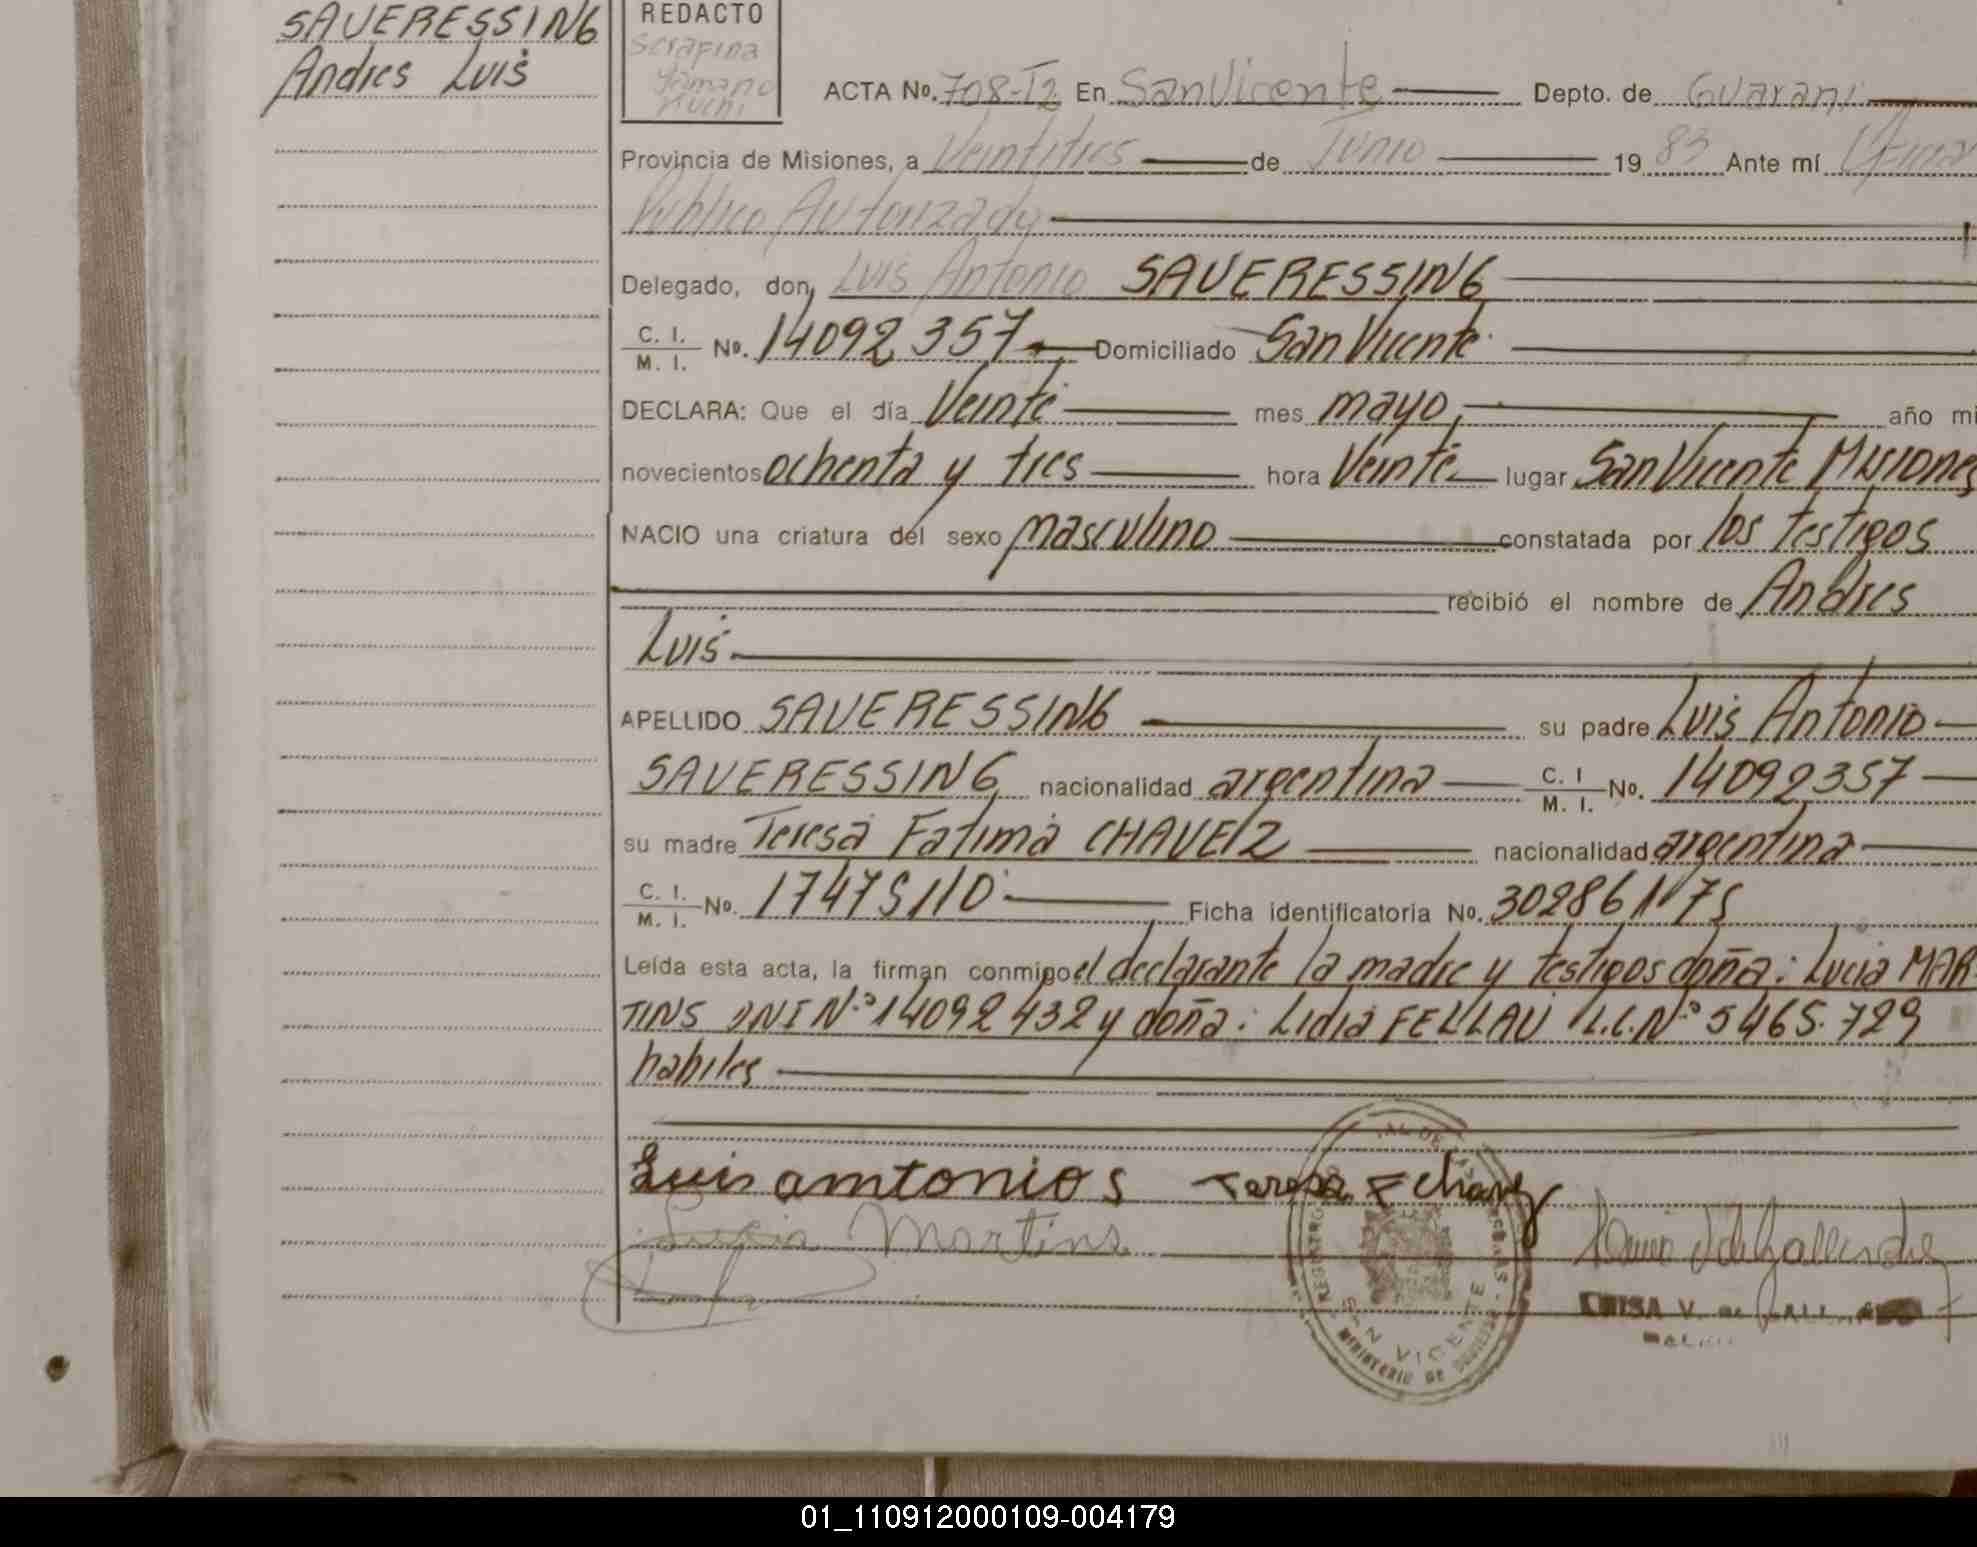 SAUERESSING
Andres Luis
REDACTO
Serafina
ACTA No. 708-T2 En San Vicente Depto. de Guarani
Provincia de Misiones, a Veintitres de Junio 19 83 Ante mí
Publico Autorizado
Delegado, don, Luis Antonio SAUERESSING
C. I.
M. I. No. 14092357 Domiciliado San Vicente
DECLARA: Que el día Veinte mes mayo, año mi
novecientos ochenta y tres hora Veinte lugar San Vicente Misiones
NACIO una criatura del sexo masculino constatada por los testigos
recibió el nombre de Andres
Luis
APELLIDO SAUERESSING su padre Luis Antonio
SAUERESSING nacionalidad argentina C. I M. I. No. 14092357
su madre Teresa Fatima CHAVEZ nacionalidad argentina
C. I. M. I. No. 17475110 Ficha identificatoria No. 302861N75
Leída esta acta, la firman conmigo el declarante la madre y testigos doña: Lucia MAR
TINS DNI Nº 14092432 y doña: Lidia FELLAU L.C. Nº 5465.729
habiles
Luis amtonio s Teresa F chavez
Lucia Martins
SAN VICENTE
01_110912000109-004179